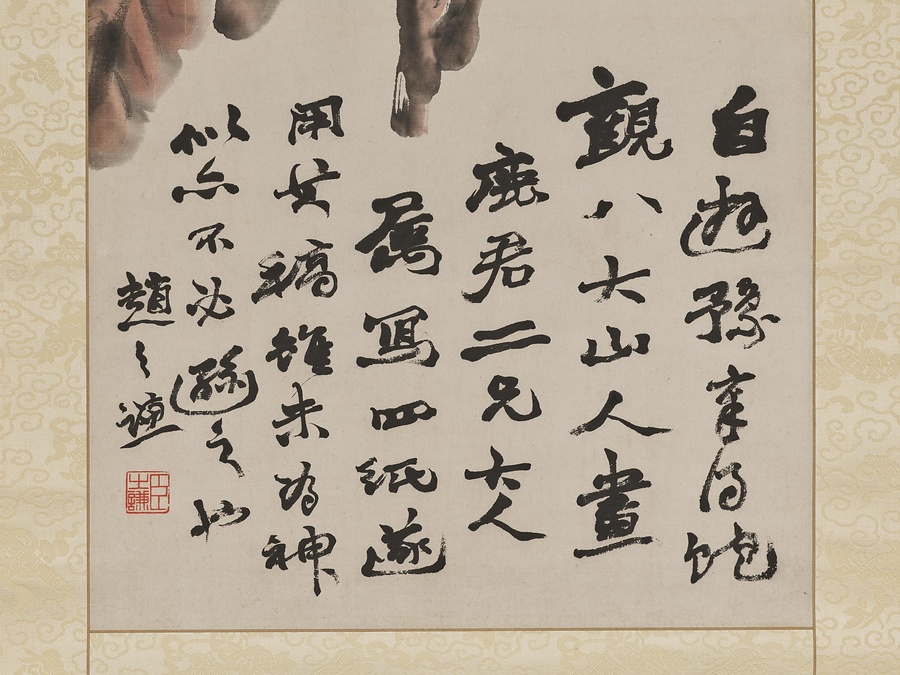 自遊豫章得飽
觀八大山人畫
鹿君二兄大人
屬寫四紙遂
用其稿雖未為神
似亦不必遜之也
趙之謙
臣之謙